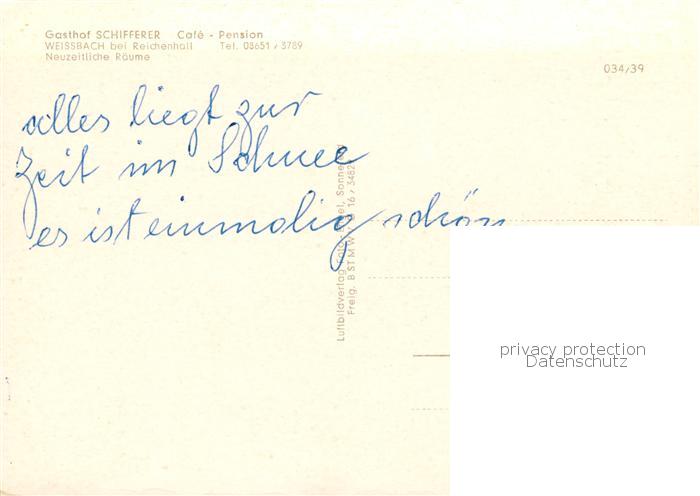 Gasthof SCHIFFERER Café - Pension
WEISSBACH bei Reichenhall Tel. 08651 / 3789
Neuzeitliche Räume
034/39
alles liegt zur
Zeit im Schnee
es ist einmalig schön
Luftbildverlag
Freig. BSTMWV 16 / 3482
privacy protection
Datenschutz